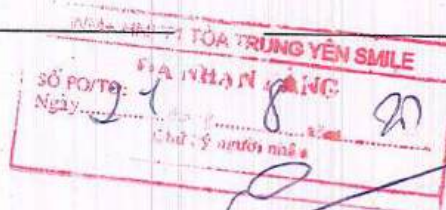 TÒA TRUNG YÊN SMILE
ĐÃ NHẬN HÀNG
SỐ PO/TO:
Ngày 21 8 20
Chữ ký người nhận